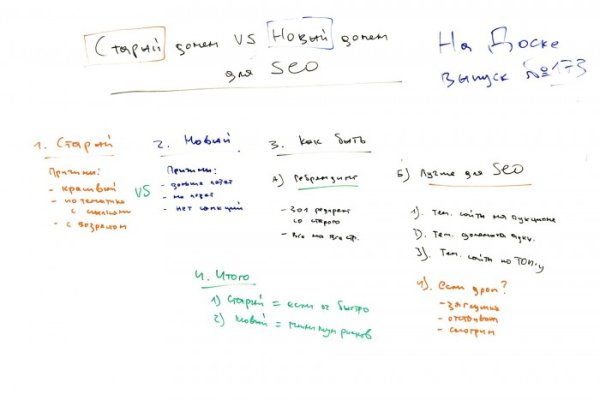 Старый домен VS Новый домен
для SEO
На Доске
выпуск №173
1. Старый
Причины:
- красивый
- по тематике
с ссылками
- с возрастом
VS
2. Новый
Причины:
- дольше
- нет санкций
3. Как быть
А) Ребрендинг
- 301 редирект
со старого
- Все на все стр.
Б) Лучше для SEO
1). Тем. сайты на аукционе
2). Тем. домены аукц.
3). Тем. сайты по ТОП-у
4). если дроп?
- заглушка
- отстойник
- смотрим
4. Итого
1) Старый = если ок быстро
2) Новый = минимум рисков